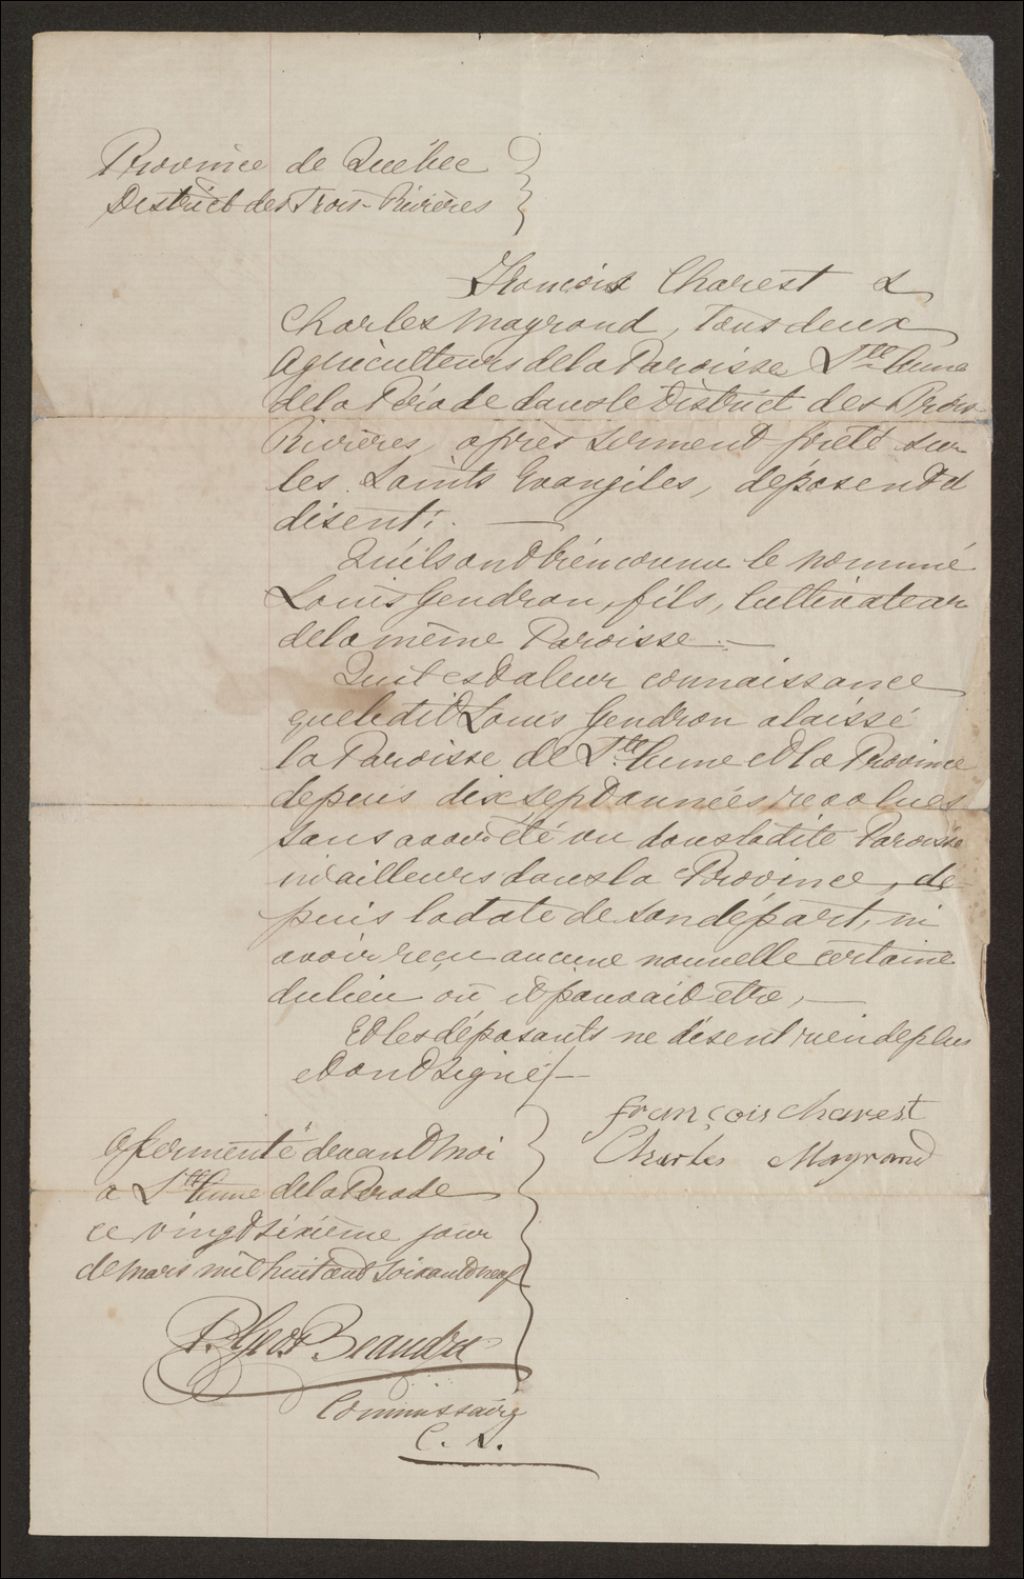 Province de Québec
District des Trois-Rivières
François Charest &
Charles Mayrand, Tous deux
Agriculteurs de la Paroisse Ste Anne
de la Pérade dans le District des Trois-
Rivières, après serment prêté sur
les Saints Evangiles, déposent &
disent:
Qu'ils ont bien connu le nommé
Louis Gendron, fils, Cultivateur
de la même Paroisse.—
Qu'il est à leur connaissance
que le dit Louis Gendron a laissé
la Paroisse de Ste Anne et la Province
depuis dix sept années revolues
sans avoir été vu dans la dite Paroisse
ni ailleurs dans la Province, de-
puis la date de son départ, ni
avoir reçu aucune nouvelle certaine
du lieu où il pouvait être,—
Et les déposants ne disent rien de plus
et ont signé/—
françois charest
Charles Mayrand
Assermenté devant moi
à Ste Anne de la Perade
ce vingt sixième jour
de mars mil huit cent soixante neuf
P. Geo. Beaudry
Commissaire
C. S.